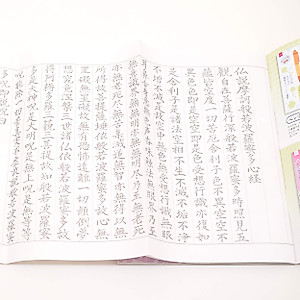 仏説摩訶般若波羅蜜多心経
観自在菩薩行深般若波羅蜜多時照見五
蘊皆空度一切苦厄舎利子色不異空空不異
色色即是空空即是色受想行識亦復如
是舎利子是諸法空相不生不滅不垢不
浄不増不減是故空中無色無受想行識無眼
耳鼻舌身意無色声香味触法無眼界乃至
無意識界無無明亦無無明尽乃至無老死
亦無老死尽無苦集滅道無智亦無得以無
所得故菩提薩埵依般若波羅蜜多故心
無罣礙無罣礙故無有恐怖遠離一切顛倒夢
想究竟涅槃三世諸仏依般若波羅蜜多故
得阿耨多羅三藐三菩提故知般若波羅蜜
多是大神呪是大明呪是無上呪是無等等
呪能除一切苦真実不虚故説般若波羅蜜
多呪即説呪曰